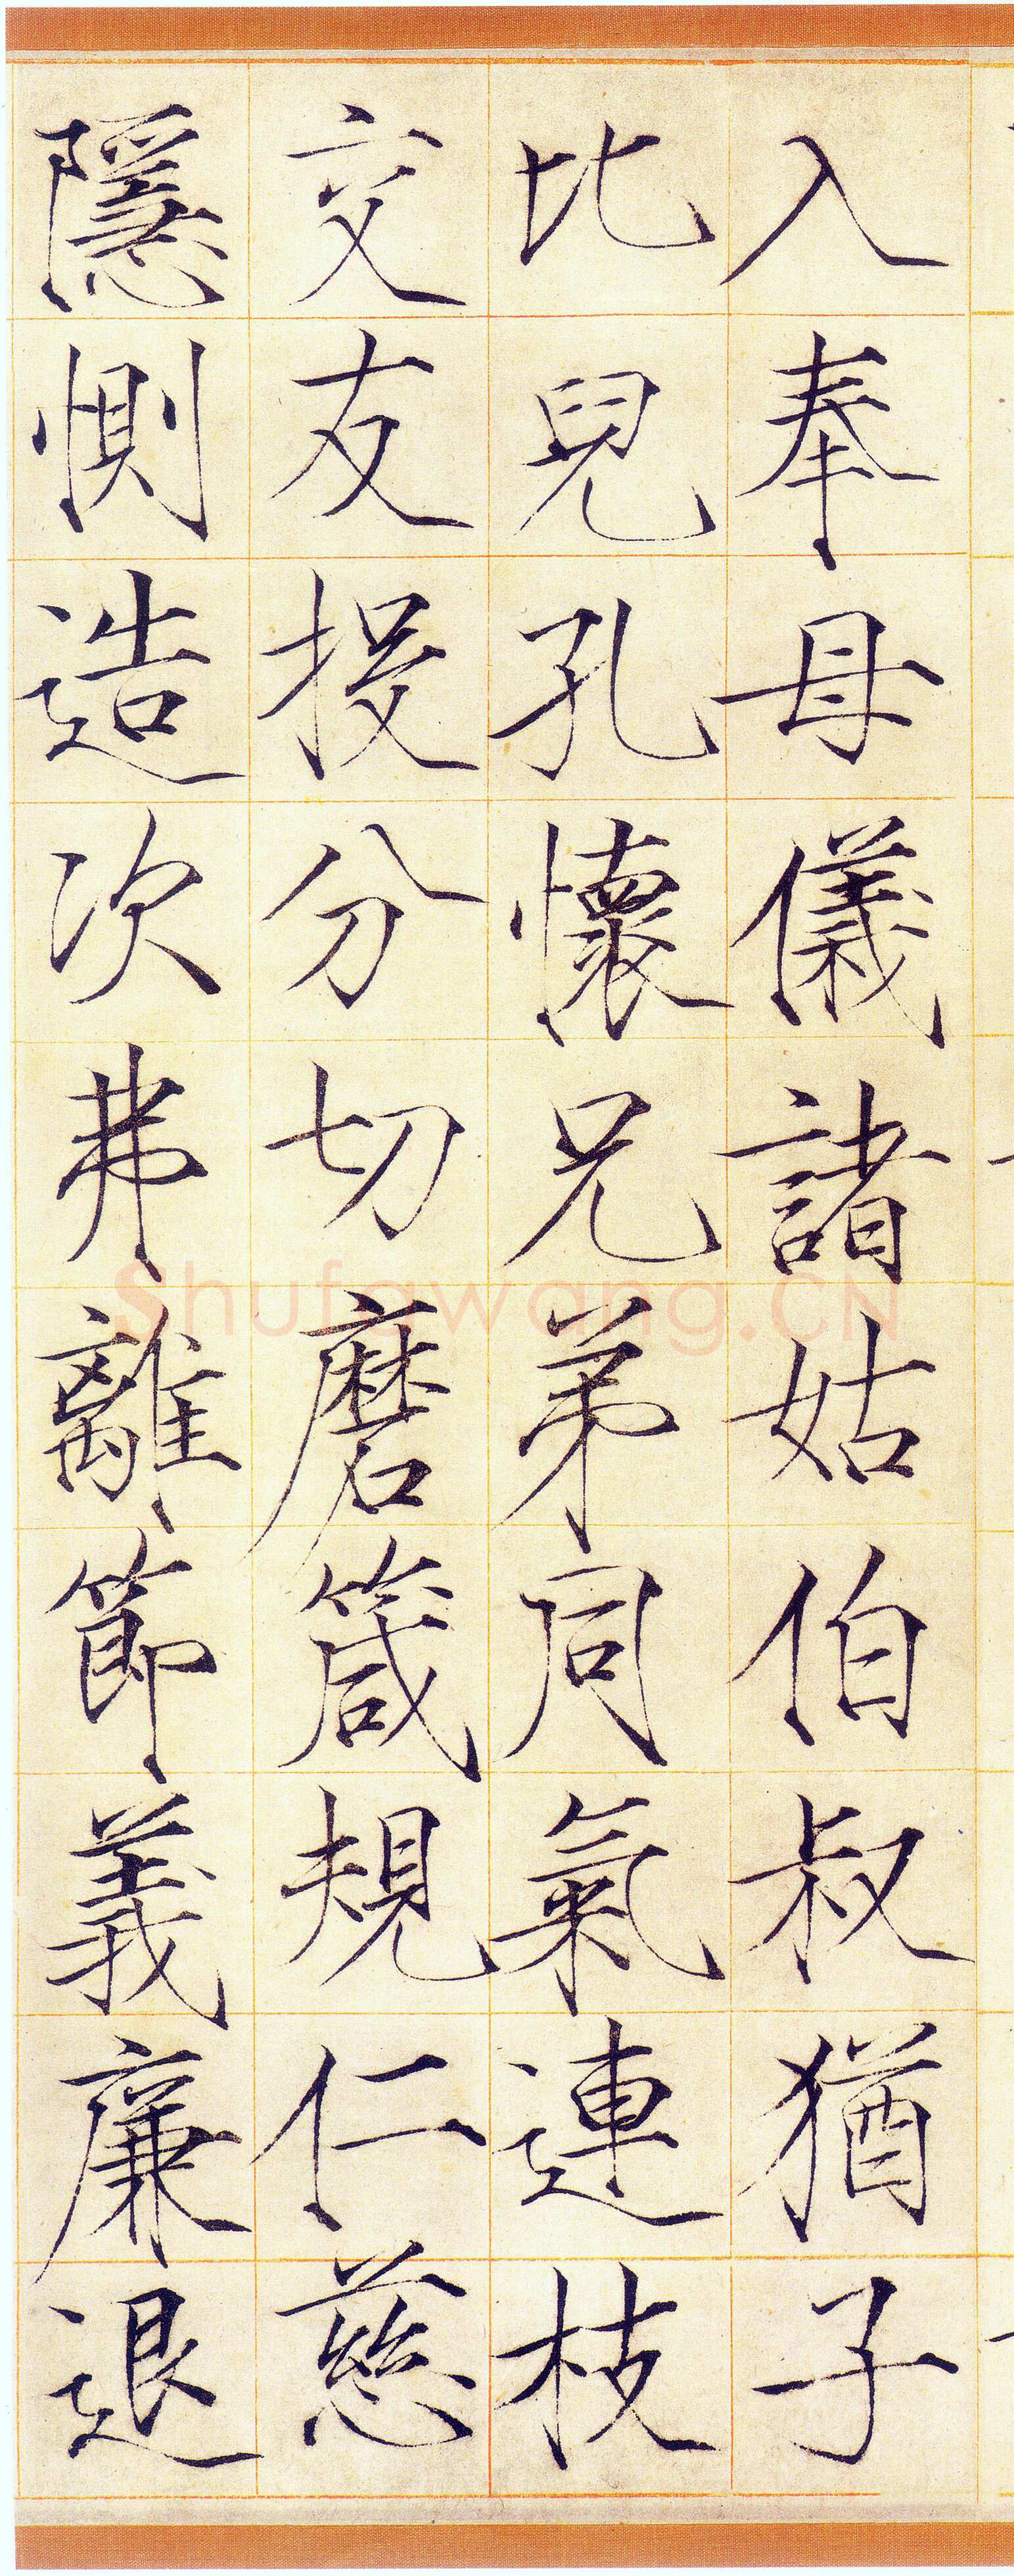 入奉母儀諸姑伯叔猶子
比兒孔懷兄弟同氣連枝
交友投分切磨箴規仁慈
隱惻造次弗離節義廉退
Shufawang.CN